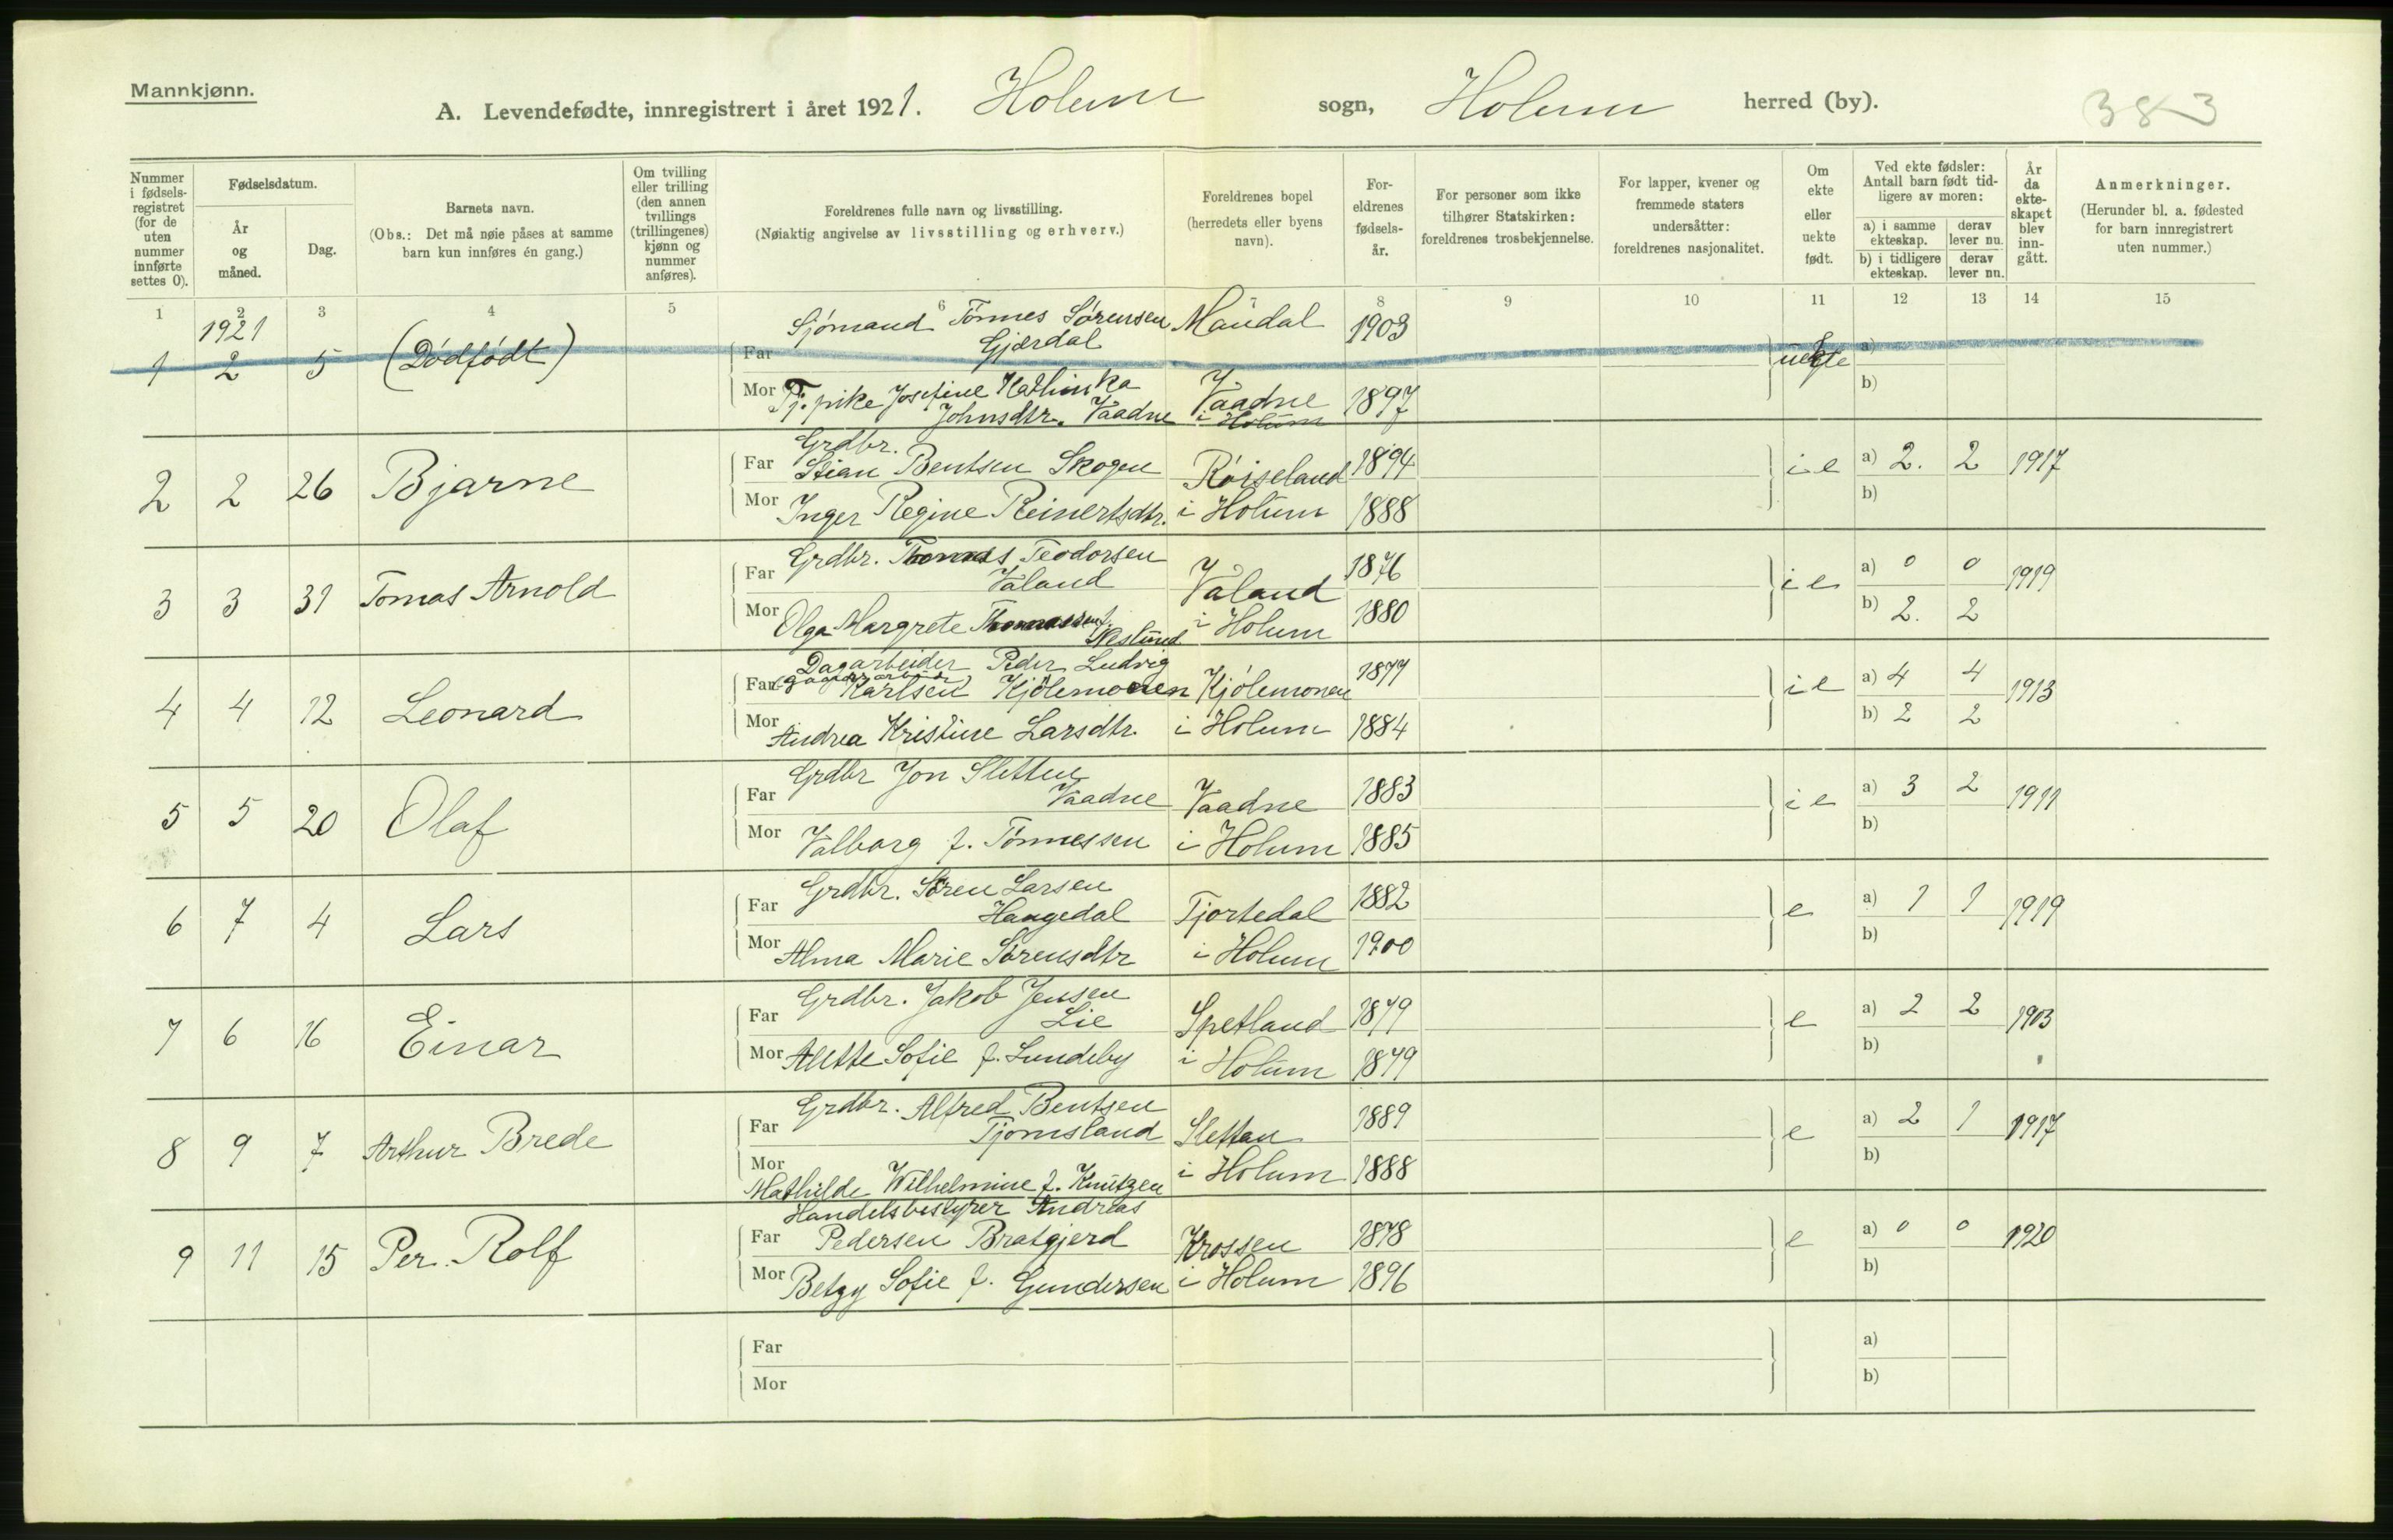 Mannkjønn.
A. Levendefødte, innregistrert i året 1921. Holum sogn, Holum herred (by). 383
Nummer i fødselsregistret (for de uten nummer innførte settes 0).
Fødselsdatum.
År og måned.
Dag.
Barnets navn.
(Obs.: Det må nøie påses at samme barn kun innføres én gang.)
Om tvilling eller trilling (den annen tvillings (trillingenes) kjønn og nummer anføres).
Foreldrenes fulle navn og livsstilling.
(Nøiaktig angivelse av livsstilling og erhverv.)
Foreldrenes bopel (herredets eller byens navn).
Foreldrenes fødselsår.
For personer som ikke tilhører Statskirken: foreldrenes trosbekjennelse.
For lapper, kvener og fremmede staters undersåtter: foreldrenes nasjonalitet.
Om ekte eller uekte født.
Ved ekte fødsler: Antall barn født tidligere av moren:
a) i samme ekteskap. derav lever nu.
b) i tidligere ekteskap. derav lever nu.
År da ekteskapet blev inngått.
Anmerkninger.
(Herunder bl. a. fødested for barn innregistrert uten nummer.)
1 2 3 4 5 6 7 8 9 10 11 12 13 14 15
1921
Sjømand Tönnes Sörensen Mandal 1903
1 2 5 (Dødfødt) Far Gjærdal uegte a)
Mor Tj. pike Josefine Kathinka Vaadne 1897 b)
Johnsdtr. Vaadne i Holum
Grdbr.
2 2 26 Bjarne Far Stian Bentsen Skogen Röiseland 1894 i e a) 2. 2 1917
Mor Inger Regine Reinertsdtr. i Holum 1888 b)
Grdbr. Thomas Teodorsen 1876
3 3 31 Tomas Arnold Far Våland Våland i e a) 0 0 1919
Mor Olga Margrete i Holum 1880 b) 2. 2
Dagarbeider Peder Ludvig
4 4 12 Leonard Far Karlsen Kjölemoen Kjölemonen 1877 i e a) 4 4 1913
Mor Andrea Kristine Larsdtr. i Holum 1884 b) 2 2
Grdbr Jon Sletten
5 5 20 Olaf Far Vaadne Vaadne 1883 i e a) 3 2 1911
Mor Valborg f. Tönnessen i Holum 1885 b)
Grdbr. Sören Larsen
6 7 4 Lars Far Haugedal Tjortedal 1882 e a) 1 1 1919
Mor Alma Marie Sørensdtr i Holum 1900 b)
Grdbr. Jakob Jensen
7 6 16 Einar Far Lie Spetland 1879 e a) 2 2 1903
Mor Alette Sofie f. Lundeby i Holum 1879 b)
Grdbr. Alfred Bentsen
8 9 7 Arthur Brede Far Tjomsland Slettan 1889 e a) 2 1 1917
Mor Mathilde Wilhelmine f. Knutzen i Holum 1888 b)
Handelsbestyrer Andreas
9 11 15 Per Rolf Far Pedersen Bratgjerd Krossen 1878 e a) 0 0 1920
Mor Betzy Sofie f. Gundersen i Holum 1896 b)
Far a)
Mor b)